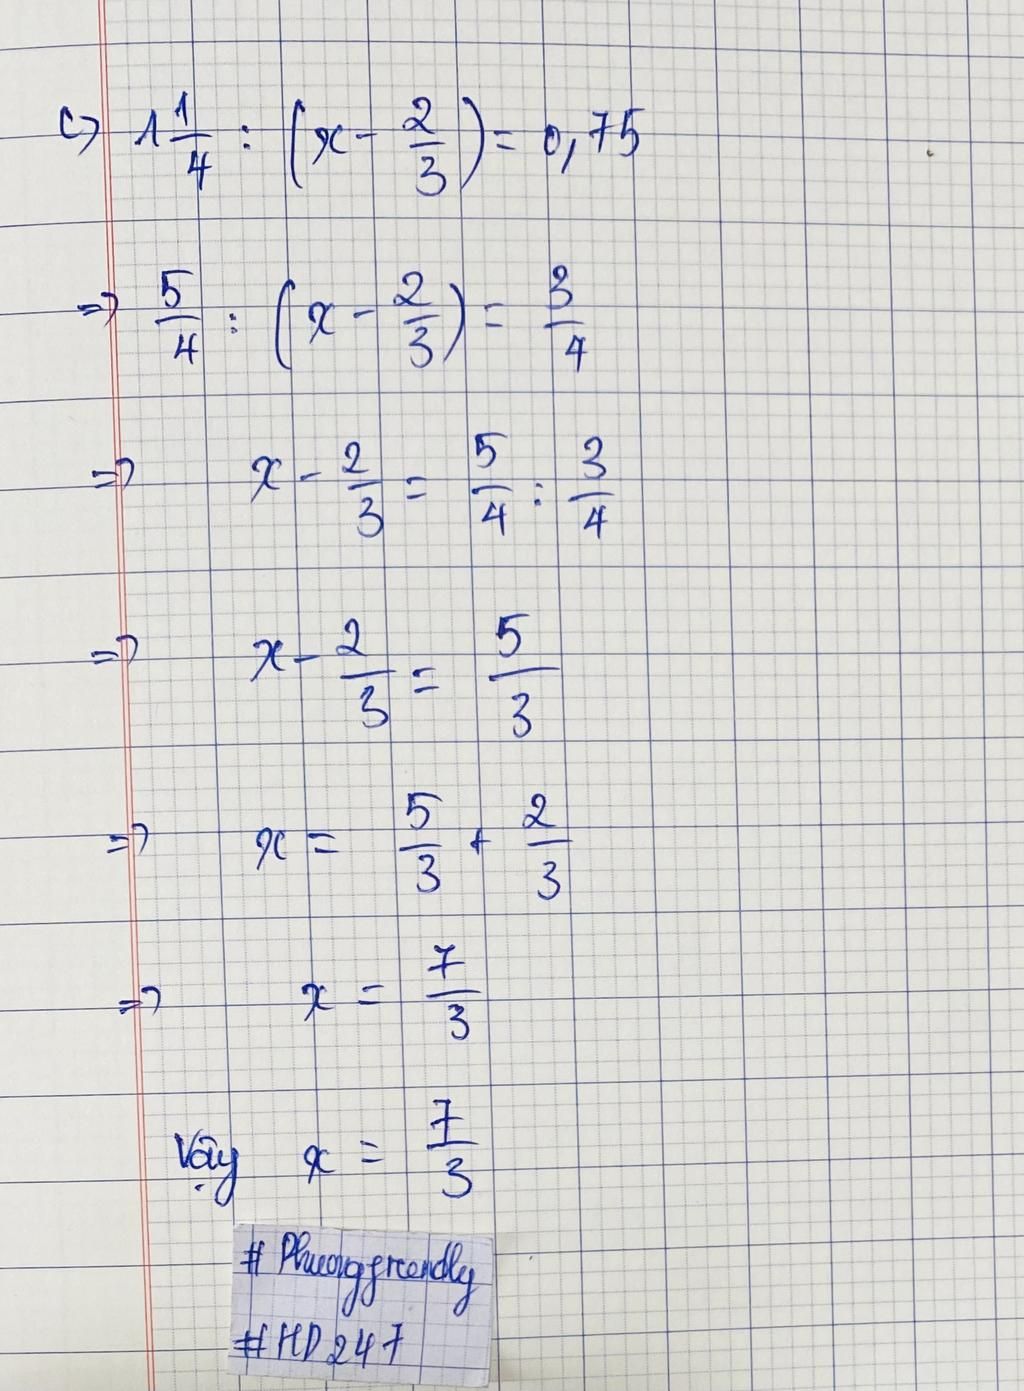 c) 1 1/4 : (x - 2/3) = 0,75
=> 5/4 : (x - 2/3) = 3/4
=> x - 2/3 = 5/4 : 3/4
=> x - 2/3 = 5/3
=> x = 5/3 + 2/3
=> x = 7/3
Vậy x = 7/3
# Phuonggreendly
#HD247